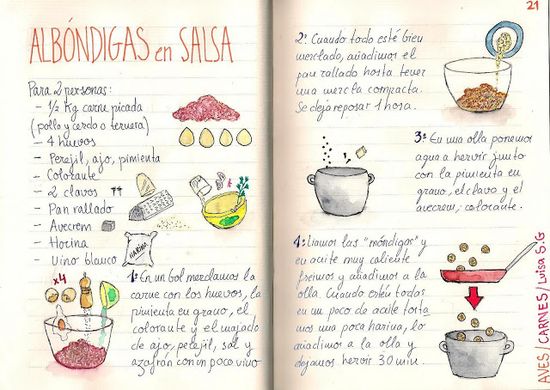 ALBÓNDIGAS en SALSA
Para 2 personas:
- ½ Kg carne picada
(pollo y cerdo o ternera)
- 4 huevos
- Perejil, ajo, pimienta
- Colorante
- 2 clavos
- Pan rallado
- Avecrem
- Harina
- Vino blanco
HARINA
x4
1º En un bol mezclamos la
carne con los huevos, la
pimienta en grano, el
colorante y el majado
de ajo, perejil, sal y
azafrán con un poco vino
21
2º Cuando todo esté bien
mezclado, añadimos el
pan rallado hasta tener
una mezcla compacta.
Se deja reposar 1 hora.
3º En una olla ponemos
agua a hervir junto
con la pimienta en
grano, el clavo y el
avecrem, colorante.
4º Liamos las "móndigas" y
en aceite muy caliente
freímos y añadimos a la
olla. Cuando estén todas
en un poco de aceite tosta
mos una poca harina, lo
añadimos a la olla y
dejamos hervir 30 min.
AVES / CARNES / Luisa S.G